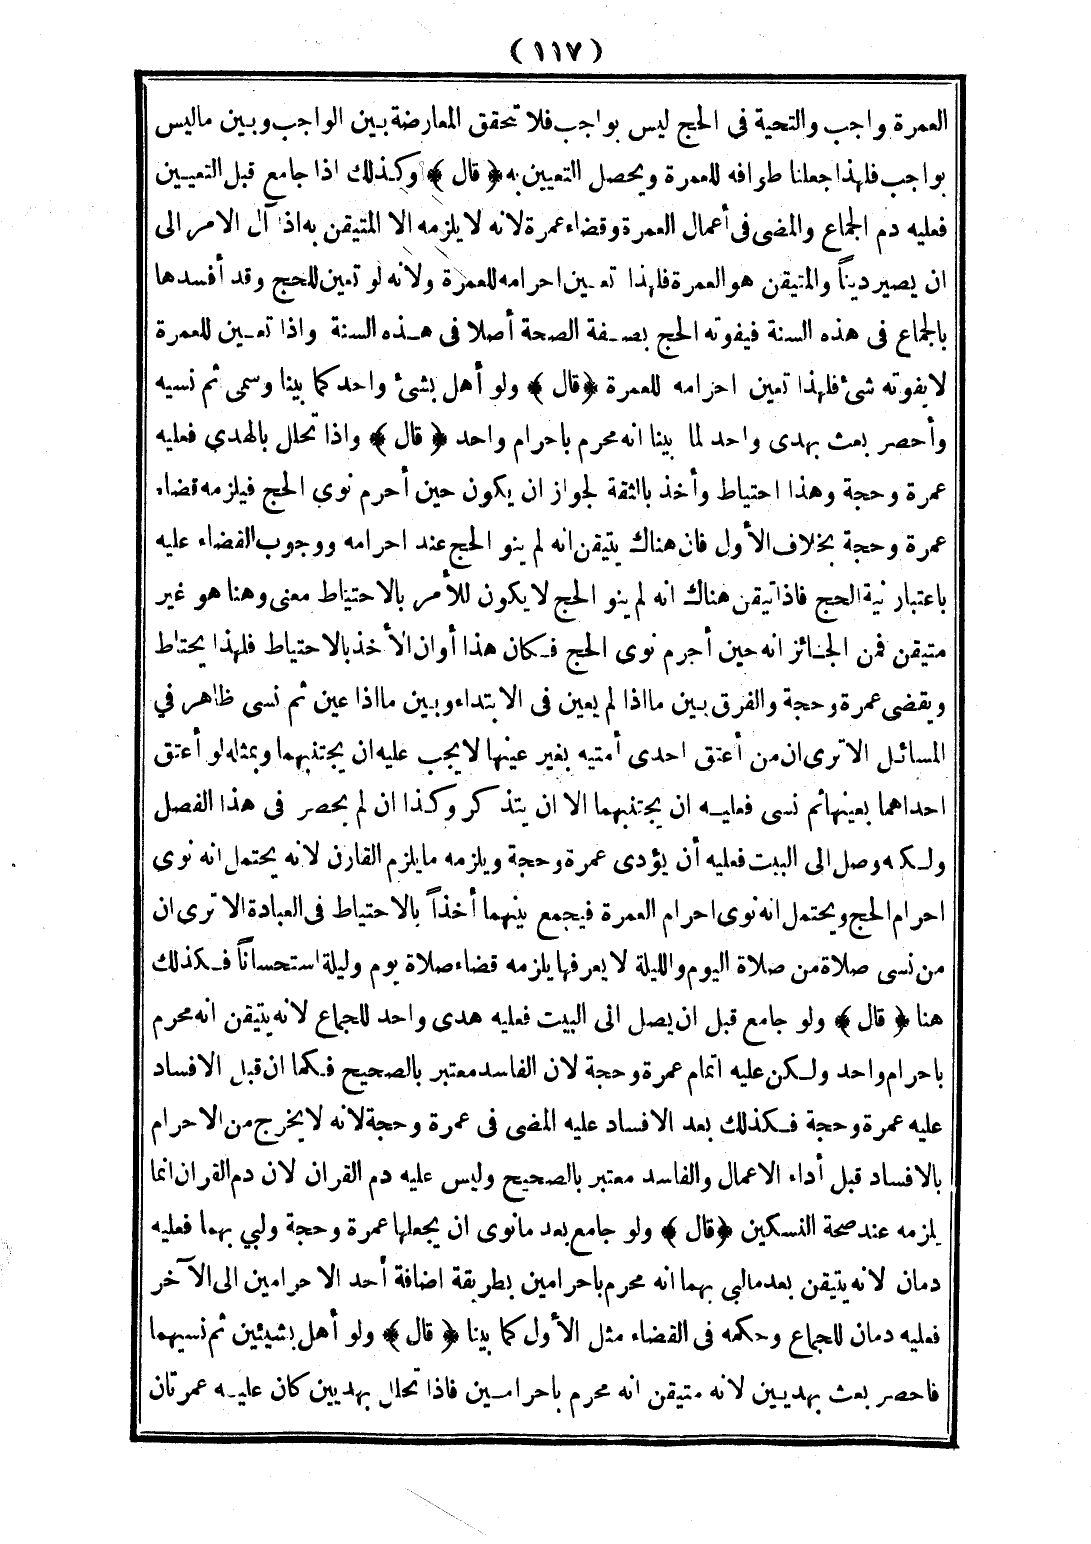 (١١٧)
العمرة واجب والتحية في الحج ليس بواجب فلا تتحقق المعارضة بين الواجب وبين ماليس
بواجب فلهذا جعلنا طوافه للعمرة ويحصل التعيين به ﴿ قال ﴾ وكذلك اذا جامع قبل التعيين
فعليه دم الجماع والمضى فى أعمال العمرة وقضاء عمرة لانه لا يلزمه الا المتيقن به اذا آل الامر الى
ان يصير ديناً والمتيقن هو العمرة فلهذا تعين احرامه للعمرة ولانه لو تعين للحج وقد أفسدها
بالجماع فى هذه السنة فيفوته الحج بصفة الصحة أصلا فى هذه السنة واذا تعين للعمرة
لا يفوته شئ فلهذا تعين احرامه للعمرة ﴿قال ﴾ ولو أهل بشئ واحد كما بينا وسمى ثم نسيه
وأحصر بعث بهدى واحد لما بينا انه محرم باحرام واحد ﴿ قال ﴾ واذا تحلل بالهدى فعليه
عمرة وحجة وهذا احتياط وأخذ بالثقة لجواز ان يكون حين أحرم نوى الحج فيلزمه قضاء
عمرة وحجة بخلاف الأول فان هناك يتيقن انه لم ينو الحج عند احرامه ووجوب القضاء عليه
باعتبار نية الحج فاذا تيقن هناك انه لم ينو الحج لا يكون للأمر بالاحتياط معنى وهنا هو غير
متيقن فمن الجائز انه حين أحرم نوى الحج فكان هذا أوان الأخذ بالاحتياط فلهذا يحتاط
ويقضى عمرة وحجة والفرق بين مااذا لم يعين فى الابتداء وبين مااذا عين ثم نسى ظاهر في
المسائل الا ترى ان من أعتق احدى أمتيه بغير عينها لا يجب عليه ان يجتنبهما وبمثله لو أعتق
احداهما بعينها ثم نسى فعليه ان يجتنبهما الا ان يتذكر وكذا ان لم يحصر فى هذا الفصل
ولكنه وصل الى البيت فعليه أن يؤدى عمرة وحجة ويلزمه مايلزم القارن لانه يحتمل انه نوى
احرام الحج ويحتمل انه نوى احرام العمرة فيجمع بينهما أخذاً بالاحتياط فى العبادة الا ترى ان
من نسى صلاة من صلاة اليوم والليلة لا يعرفها يلزمه قضاء صلاة يوم وليلة استحساناً فكذلك
هنا ﴿ قال ﴾ ولو جامع قبل ان يصل الى البيت فعليه هدى واحد للجماع لانه يتيقن انه محرم
باحرام واحد ولكن عليه اتمام عمرة وحجة لان الفاسد معتبر بالصحيح فكما ان قبل الافساد
عليه عمرة وحجة فكذلك بعد الافساد عليه المضى فى عمرة وحجة لانه لا يخرج من الاحرام
بالافساد قبل أداء الاعمال والفاسد معتبر بالصحيح وليس عليه دم القران لان دم القران انما
يلزمه عند صحة النسكين ﴿قال ﴾ ولو جامع بعد مانوى ان يجعلها عمرة وحجة ولبي بهما فعليه
دمان لانه يتيقن بعد مالبي بهما انه محرم باحرامين بطريقة اضافة أحد الاحرامين الى الآخر
فعليه دمان للجماع وحكمه فى القضاء مثل الأول كما بينا ﴿ قال ﴾ ولو أهل بشيئين ثم نسيهما
فاحصر بعث بهديين لانه متيقن انه محرم باحرامين فاذا تحلل بهديين كان عليه عمرتان